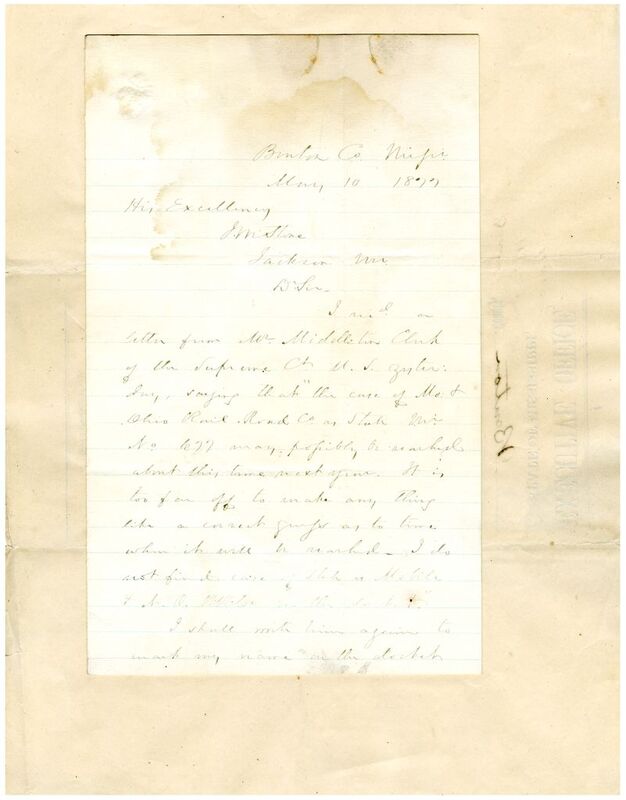 Benton Co Missi
May 10 1877
His Excellency
J M Stone
Jackson Mi
Dr Sir.
I recd. a
letter from Mr. Middleton Clerk
of the Supreme Ct U. S. yester-
day, saying that "the case of Mo. &
Ohio Rail Road Co vs State Mi
No 677 may possibly be reached
about this time next year. It is
too far off to make any thing
like a correct guess as to time
when it will be reached - I do
not find case of State vs Mobile
& N. O.
in the docket"
I shall write him again to
mark my name on the docket
Benton
EXECUTIVE OFFICE